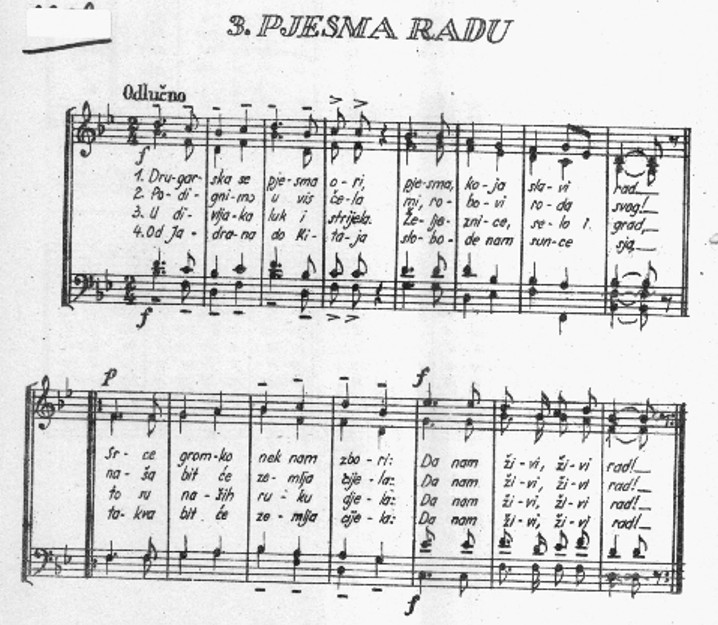 3. PJESMA RADU
Odlučno
f
1. Dru-gar- ska se pje-sma o-ri, pje-sma, ko-ja sla-vi rad
2. Po-di- gni-mo u vis če-la mi, ro-bo-vi ro-da svog!
3. U di-vlja-ka luk i strijela. Že-lje-zni-ce, se-lo i grad,
4. Od Ja-dra-na do Ki-ta-ja slo-bo-de nam sun-ce sja,
f
p f
Sr-ce grom-ko nek nam zbo-ri: Da nam ži-vi, ži-vi rad!
na-ša bit će ze-mlja cije-la: Da nam ži-vi, ži-vi rad!
to su na-ših ru-ku dje-la: Da nam ži-vi, ži-vi rad!
ta-kva bit će ze-mlja cije-la: Da nam ži-vi, ži-vi rad!
f